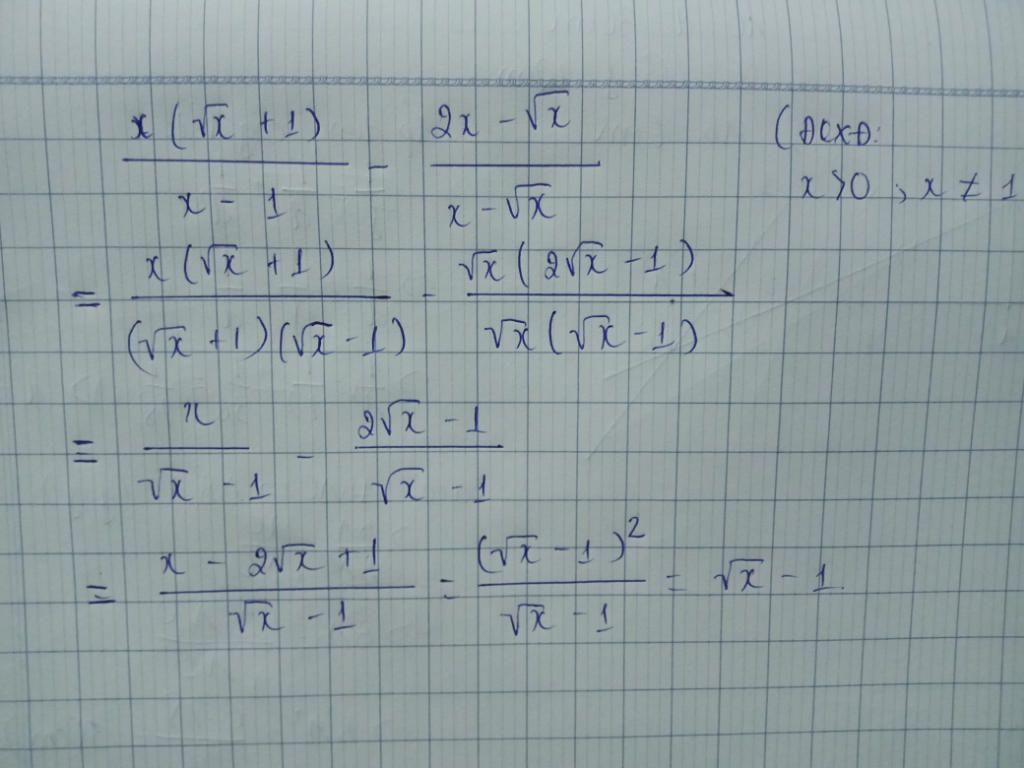 x(√x + 1)/(x - 1) - (2x - √x)/(x - √x) (ĐCXĐ:
x > 0, x ≠ 1
= x(√x + 1)/((√x + 1)(√x - 1)) - √x(2√x - 1)/(√x(√x - 1))
= x/(√x - 1) - (2√x - 1)/(√x - 1)
= (x - 2√x + 1)/(√x - 1) = (√x - 1)²/(√x - 1) = √x - 1.